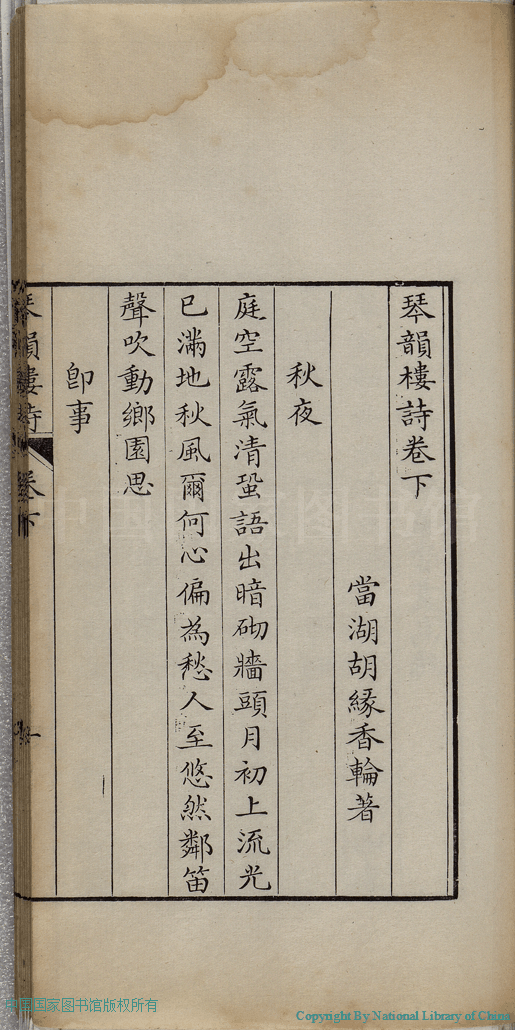 琴韻樓詩卷下
當湖胡緣香輪著
秋夜
庭空露氣清蛩語出暗砌牆頭月初上流光
已滿地秋風爾何心偏為愁人至悠然鄰笛
聲吹動鄉園思
卽事
琴韻樓詩 卷下 一
中国国家图书馆
中国国家图书馆版权所有
Copyright By National Library of China